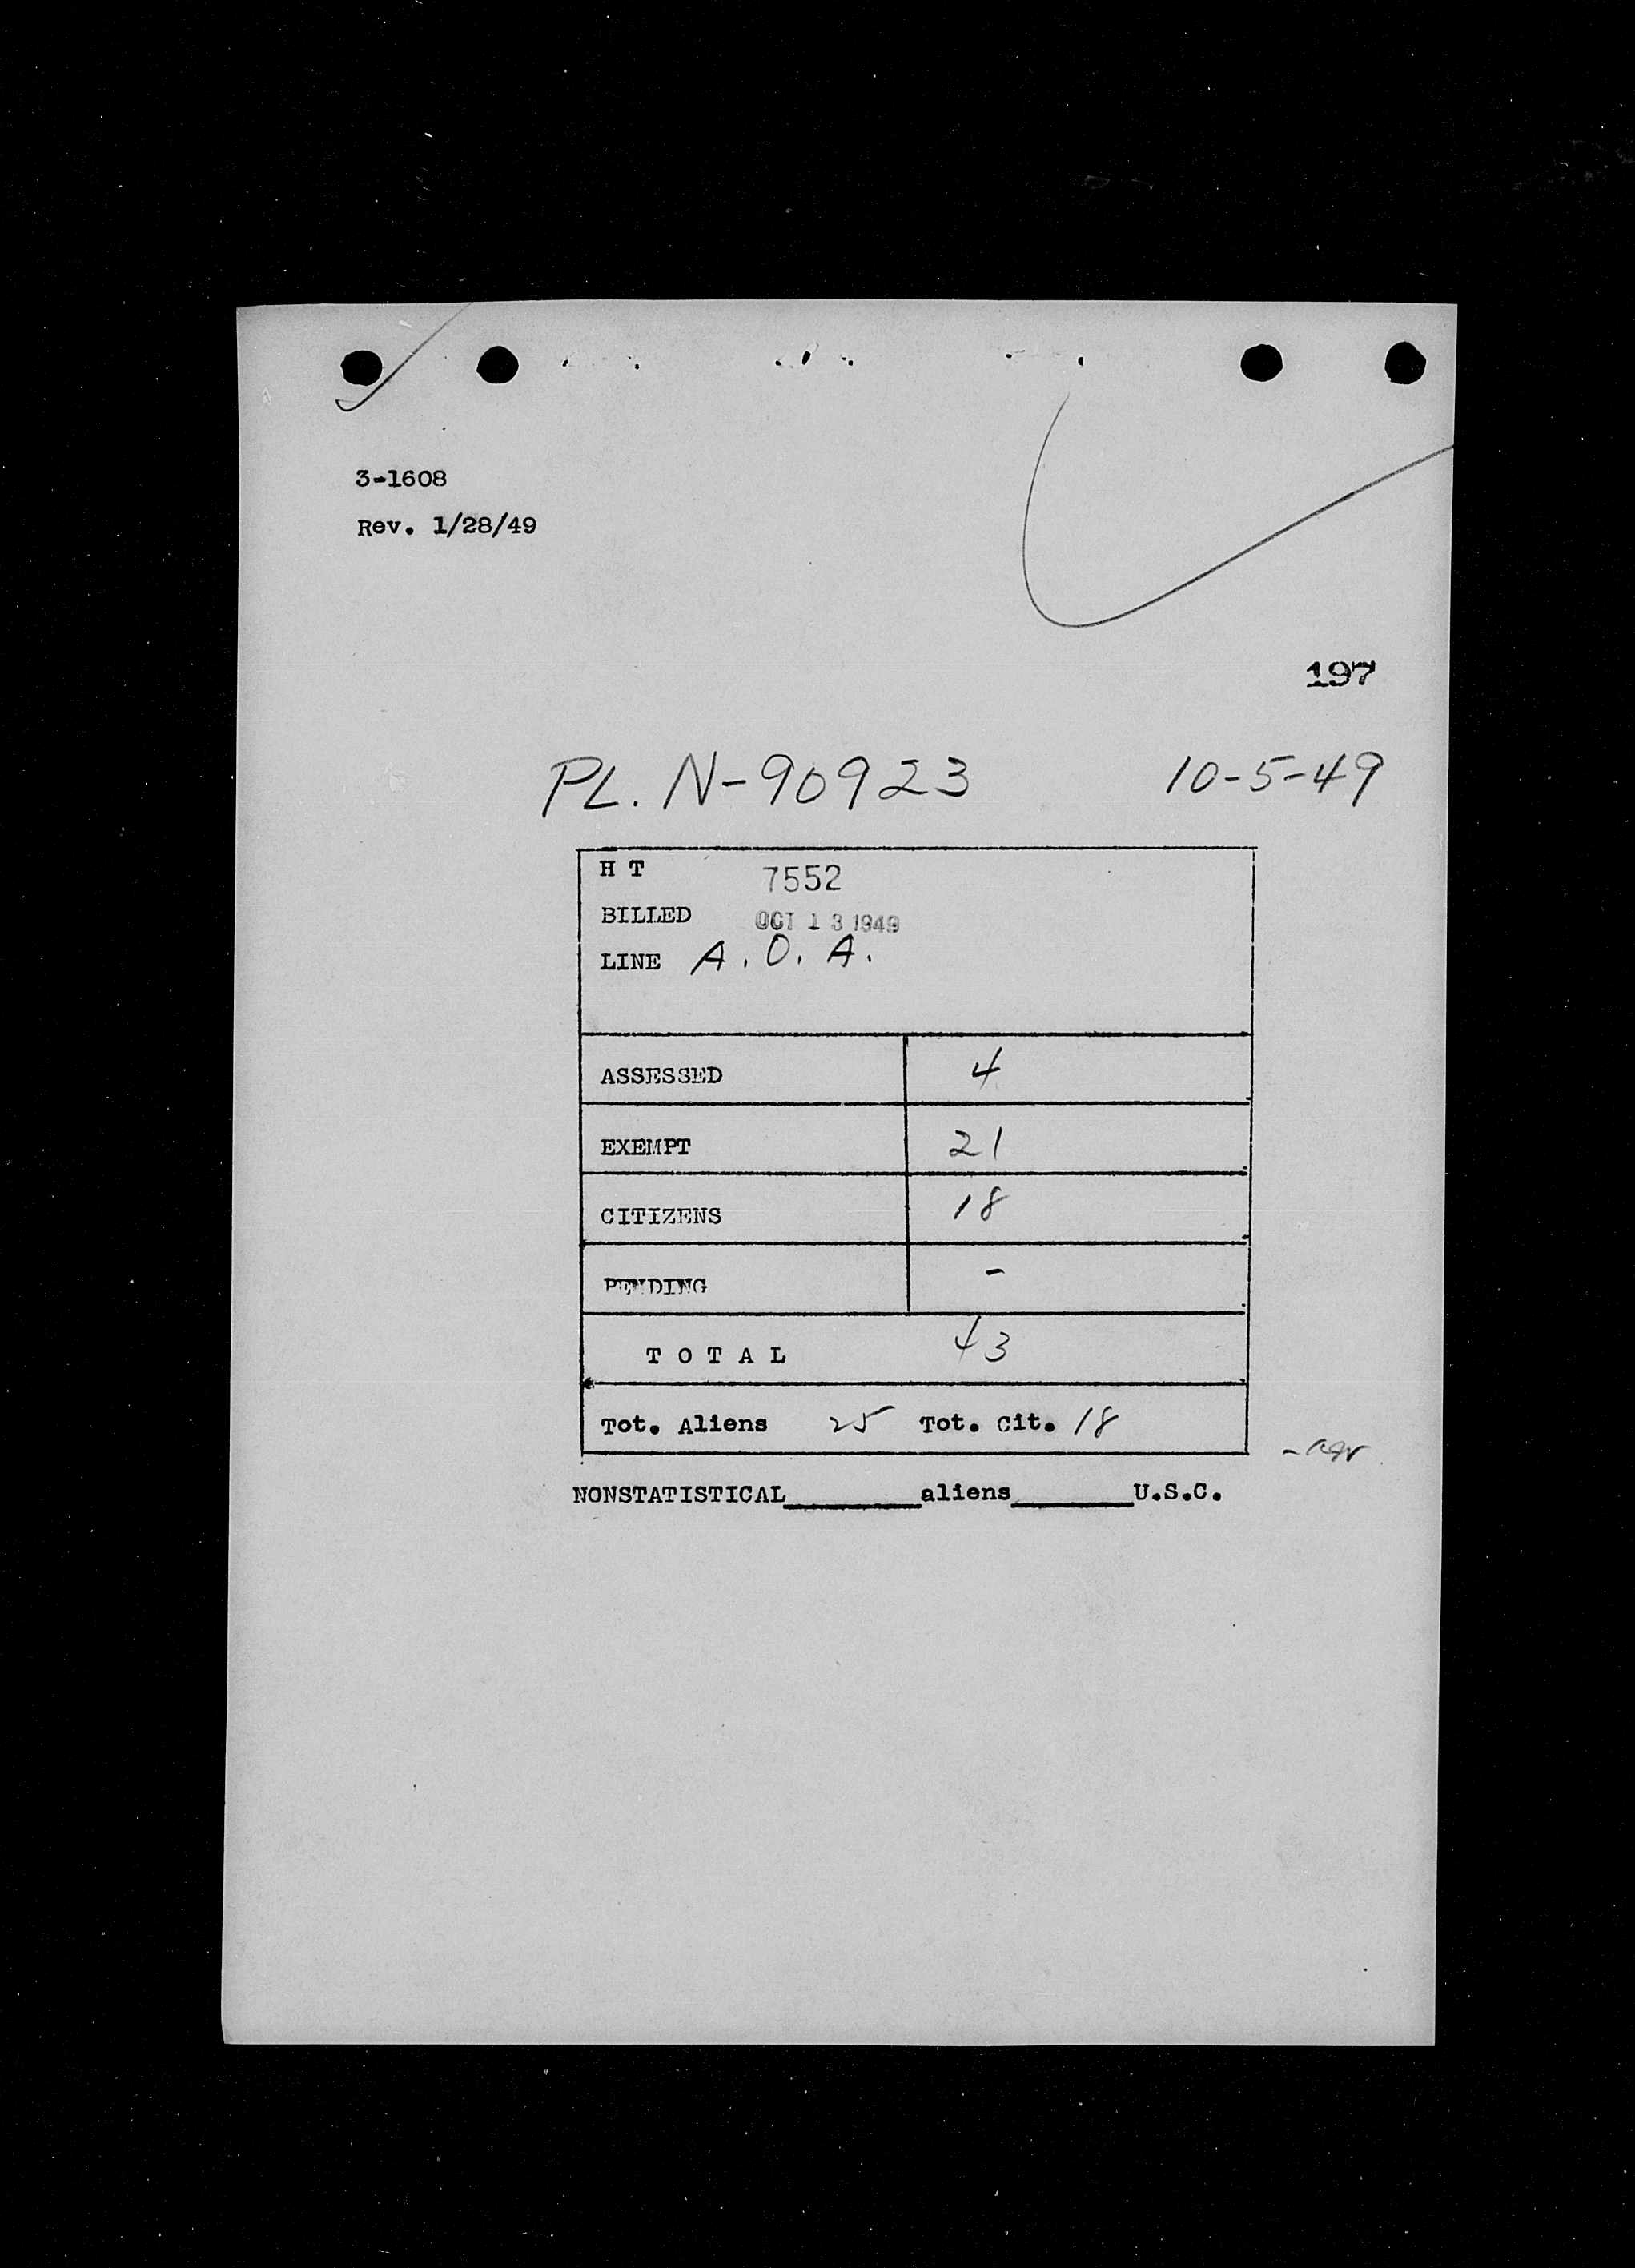 3-1608
Rev. 1/28/49
197
PL. N-90923 10-5-49
H T 7552
BILLED OCT 13 1949
LINE A. O. A.
ASSESSED 4
EXEMPT 21
CITIZENS 18
PENDING -
T O T A L 43
Tot. Aliens 25 Tot. Cit. 18
NONSTATISTICAL________aliens_______U.S.C.